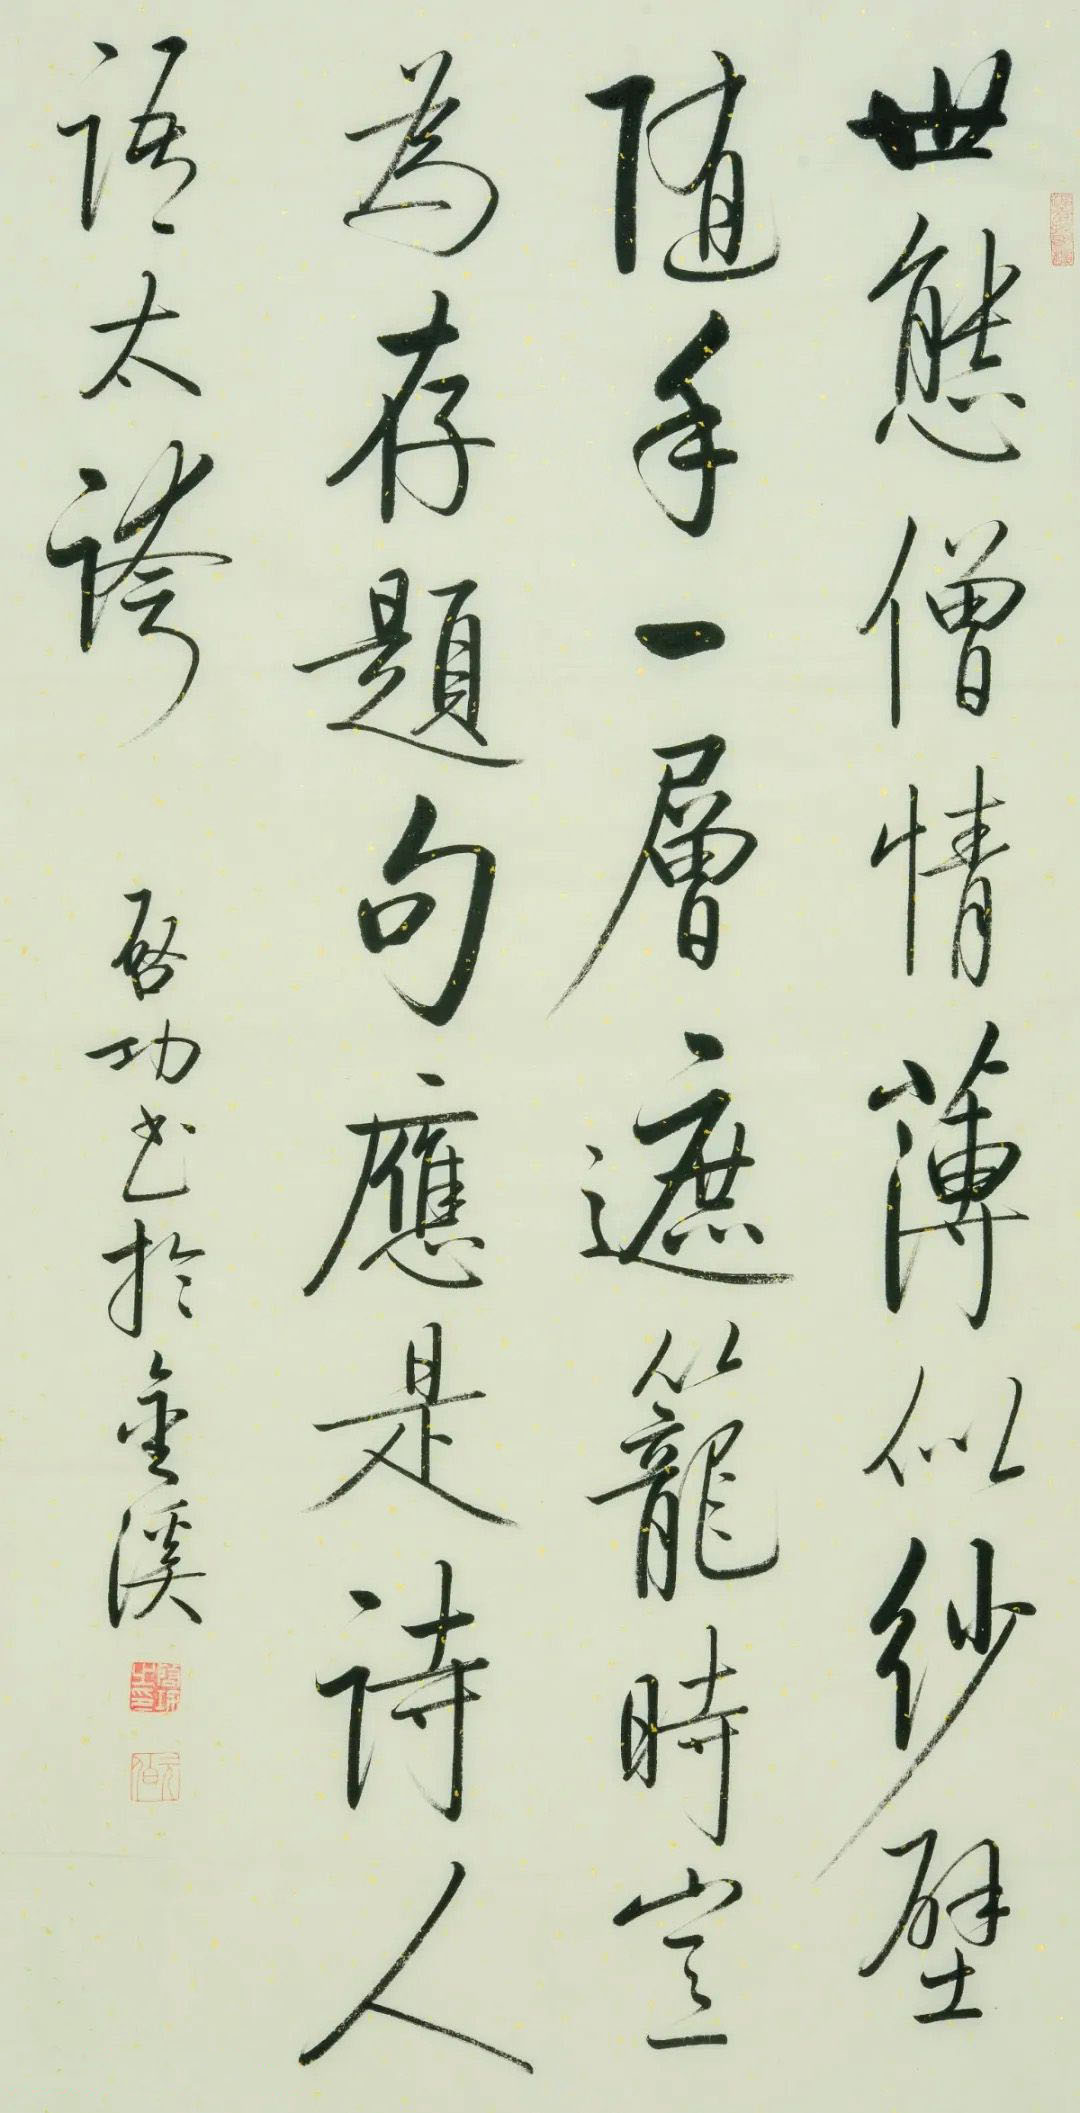 世態僧情薄似紗壁
隨手一層遮籠時豈
為存題句應是詩人
語太誇
啓功書於金溪